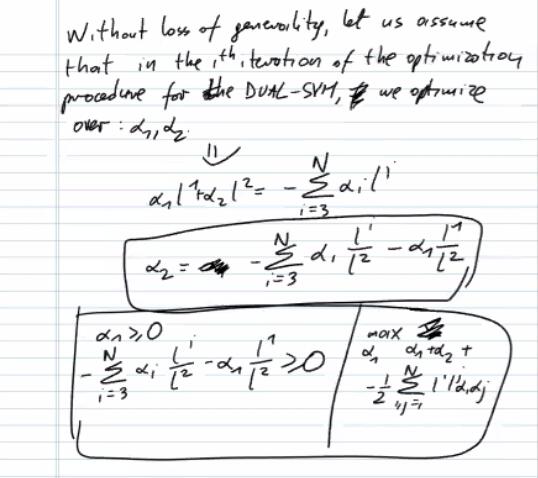 Without loss of generality, let us assume
that in the iᵗʰ iteration of the optimization
procedure for the DUAL-SVM, we optimize
over: α₁, α₂
⇓
α₁l¹+α₂l² = - Σ_{i=3}^{N} αᵢ lⁱ
α₂ = - Σ_{i=3}^{N} αᵢ lⁱ/l² - α₁ l¹/l²
α₁ ≥ 0
- Σ_{i=3}^{N} αᵢ lⁱ/l² - α₁ l¹/l² ≥ 0
max
α₁ α₁+α₂ +
- 1/2 Σ^{N} lⁱ lʲ αᵢ αⱼ